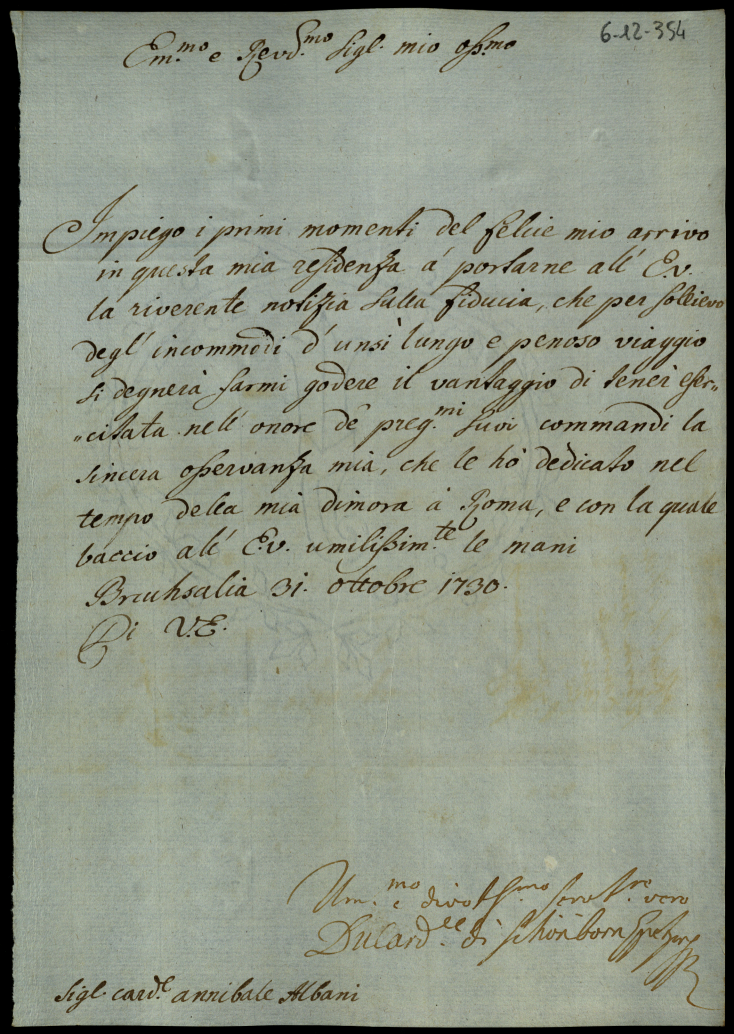 6-12-354
Em.mo e Revd.mo Sigl. mio oss.mo
Impiego i primi momenti del felice mio arrivo
in questa mia residenza á portarne all' E.V.
la riverente notizia sulla fiducia, che per sollievo
degl' incommodi d' unsì lungo e penoso viaggio
si degnerà farmi godere il vantaggio di tener eser„
„citata nell' onore de preg.mi suoi commandi la
sincera osservanza mia, che le hò dedicato nel
tempo della mia dimora à Roma, e con la quale
baccio all' E.V. umilissim.te le mani
Bruhsalia 31. ottobre 1730.
Di V.E.
Um.mo e divotss.mo serv.re vero
Card.le di Schönborn
Sigl. card.le annibale Albani